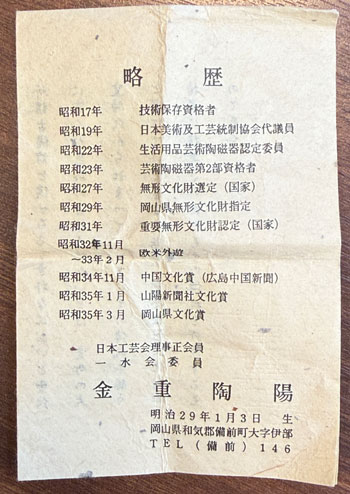 略歴
昭和17年 技術保存資格者
昭和19年 日本美術及工芸統制協会代議員
昭和22年 生活用品芸術陶磁器認定委員
昭和23年 芸術陶磁器第2部資格者
昭和27年 無形文化財選定（国家）
昭和29年 岡山県無形文化財指定
昭和31年 重要無形文化財認定（国家）
昭和32年11月
～33年2月 欧米外遊
昭和34年11月 中国文化賞（広島中国新聞）
昭和35年1月 山陽新聞社文化賞
昭和35年3月 岡山県文化賞
日本工芸会理事正会員
一水会委員
金重陶陽
明治29年1月3日 生
岡山県和気郡備前町大字伊部
TEL（備前）146